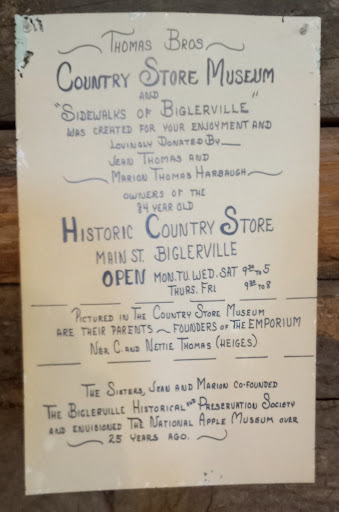 Thomas Bros
Country Store Museum
and
"Sidewalks of Biglerville"
was created for your enjoyment and
Lovingly Donated By
Jean Thomas and
Marion Thomas Harbaugh
owners of the
84 year old
Historic Country Store
Main St. Biglerville
OPEN Mon. Tu. Wed. Sat 9:00 to 5
Thurs. Fri 9:00 to 8
Pictured in The Country Store Museum
are their parents ~ founders of The EMPORIUM
Ner C. and Nettie Thomas (Heiges)
The Sisters, Jean and Marion co-founded
The Biglerville Historical and Preservation Society
and envisioned The National Apple Museum over
25 years ago.